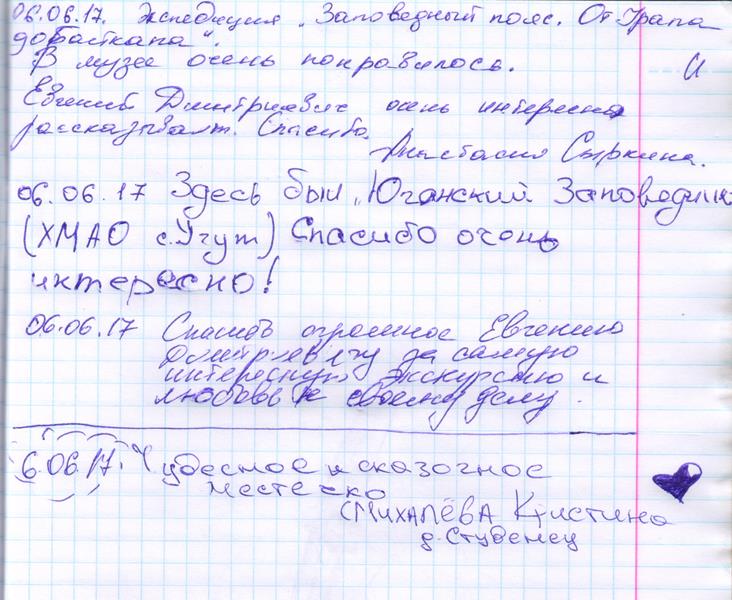 06.06.17. Экспедиция „Заповедный пояс. От Урала
до Балткана“.
В музее очень понравилось.
Евгений Дмитриевич очень интересно
рассказывает. Спасибо.
Анастасия Сыркина.
06.06.17 Здесь был „Юганский Заповедник
(ХМАО с.Угут) Спасибо очень
интересно!
06.06.17 Спасибо огромное Евгению
Дмитриевичу за самую
интересную экскурсию и
любовь к своему делу.
6.06.17. Чудесное и сказочное
местечко
Михалёва Кристина
д.Студенец